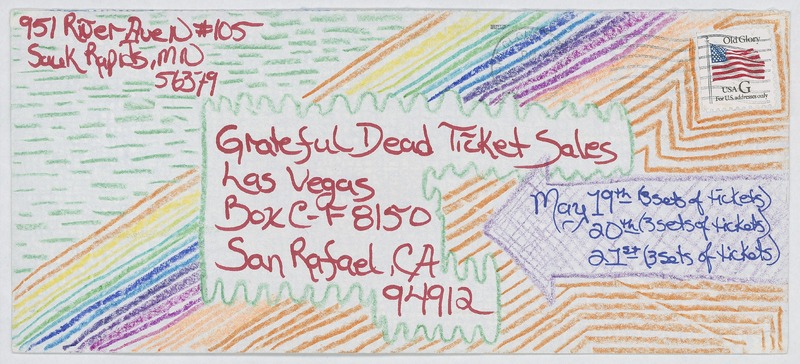 951 River Ave N #105
Sauk Rapids, MN
56379
Old Glory
USA G
For U.S. addresses only
Grateful Dead Ticket Sales
Las Vegas
Box C-F 8150
San Rafael, CA
94912
May 19th (3 sets of tickets)
20th (3 sets of tickets)
21st (3 sets of tickets)